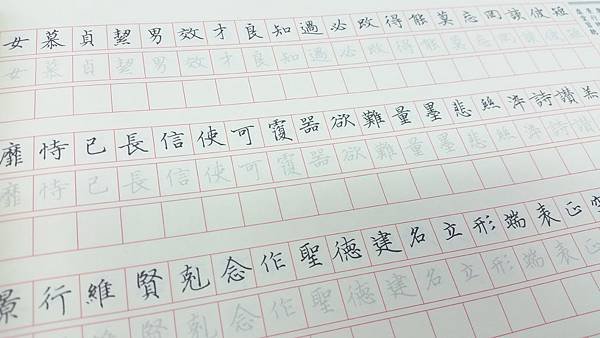 女慕貞絜男效才良知過必改得能莫忘罔談彼短
女慕貞絜男效才良知過必改得能莫忘罔談彼短
靡恃已長信使可覆器欲難量墨悲絲染詩讚羔
靡恃已長信使可覆器欲難量墨悲絲染詩讚
景行維賢剋念作聖德建名立形端表正空
維賢剋念作聖德建名立形端表正